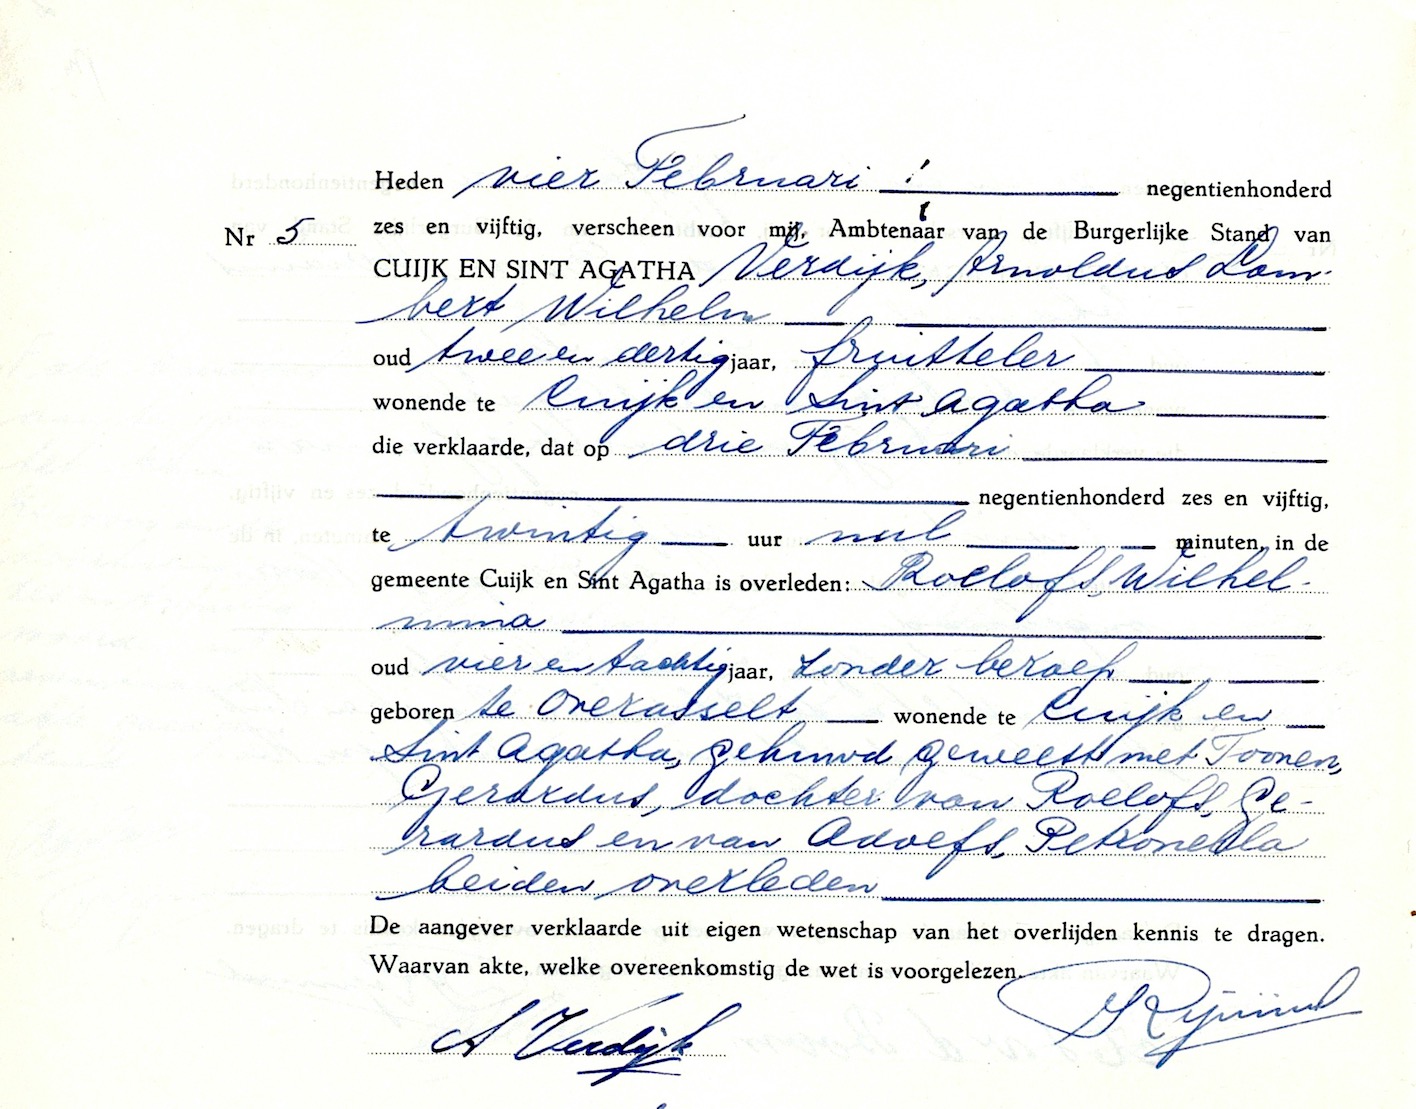 Heden vier Februari negentienhonderd
Nr 5 zes en vijftig, verscheen voor mij, Ambtenaar van de Burgerlijke Stand van
CUIJK EN SINT AGATHA Verdijk, Arnoldus Lam-
bert Wilhelm
oud twee en dertig jaar, fruitteler
wonende te Cuijk en Sint Agatha
die verklaarde, dat op drie Februari
negentienhonderd zes en vijftig,
te twintig uur nul minuten, in de
gemeente Cuijk en Sint Agatha is overleden: Roelofs, Wilhel-
mina
oud vier en tachtig jaar, zonder beroep
geboren te Overasselt wonende te Cuijk en
Sint Agatha, gehuwd geweest met Toonen,
Gerardus, dochter van Roelofs, Ge-
rardus en van Adolfs, Petronella
beiden overleden
De aangever verklaarde uit eigen wetenschap van het overlijden kennis te dragen.
Waarvan akte, welke overeenkomstig de wet is voorgelezen.
A Verdijk